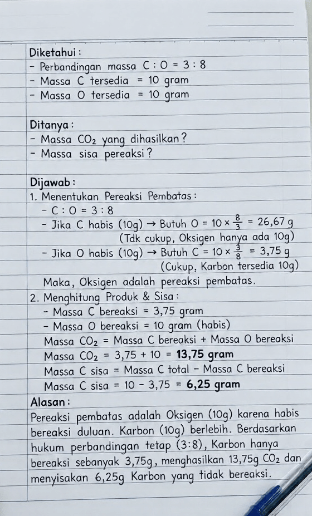 Diketahui :
- Perbandingan massa C : O = 3 : 8
- Massa C tersedia = 10 gram
- Massa O tersedia = 10 gram
Ditanya :
- Massa CO₂ yang dihasilkan ?
- Massa sisa pereaksi ?
Dijawab :
1. Menentukan Pereaksi Pembatas :
- C : O = 3 : 8
- Jika C habis (10g) → Butuh O = 10 × 8/3 = 26,67 g
(Tdk cukup, Oksigen hanya ada 10g)
- Jika O habis (10g) → Butuh C = 10 × 3/8 = 3,75 g
(Cukup, Karbon tersedia 10g)
Maka, Oksigen adalah pereaksi pembatas.
2. Menghitung Produk & Sisa :
- Massa C bereaksi = 3,75 gram
- Massa O bereaksi = 10 gram (habis)
Massa CO₂ = Massa C bereaksi + Massa O bereaksi
Massa CO₂ = 3,75 + 10 = 13,75 gram
Massa C sisa = Massa C total - Massa C bereaksi
Massa C sisa = 10 - 3,75 = 6,25 gram
Alasan :
Pereaksi pembatas adalah Oksigen (10g) karena habis
bereaksi duluan. Karbon (10g) berlebih. Berdasarkan
hukum perbandingan tetap (3:8), Karbon hanya
bereaksi sebanyak 3,75g, menghasilkan 13,75g CO₂ dan
menyisakan 6,25g Karbon yang tidak bereaksi.